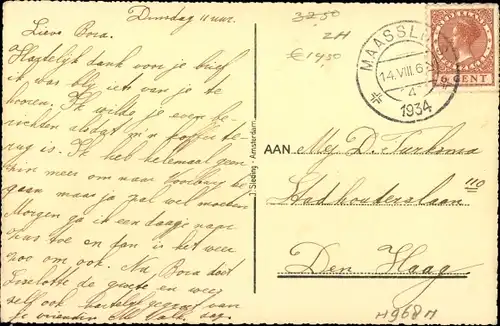 Dinsdag 11 uur.
Lieve Bora.
Hartelijk dank voor je brief
ik was blij iets van je te
hooren. Ik wilde je even be-
richten dat m'n
terug is. Ik heb helemaal geen
zin meer om naar Voorburg te
gaan maar ja zal wel moeten
Morgen ga ik een daagje naar
huis toe en dan is het weer
zoo om ook. Nu Bora doet
Liselotte de groete en wees
zelf ook hartelijk gegroet van
je vriendin M. dag.
D. Sleding - Amsterdam
3250
2H
€ 1450
MAASSLUIS
14.VIII.6
4
1934
NEDERLAND
6 CENT
AAN Mej D. Turksma
Stadhouderslaan 110
Den Haag
H968M